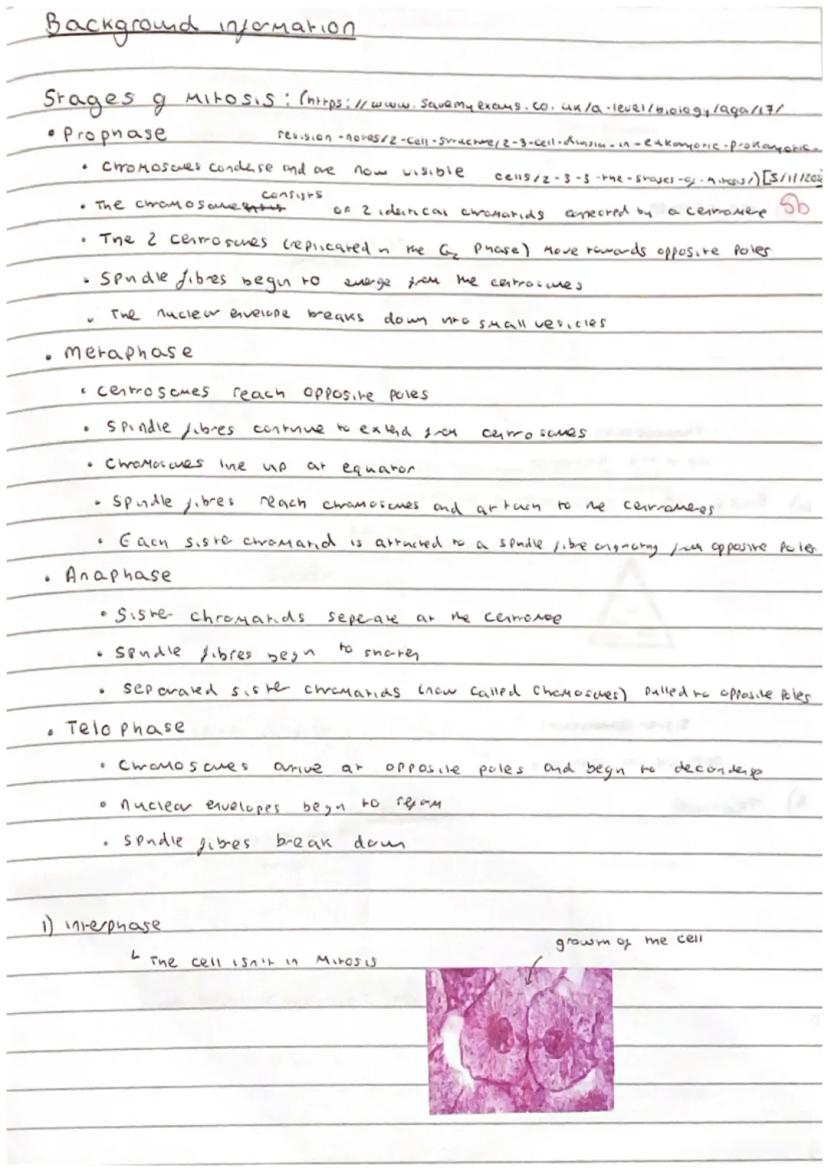 Background information
Stages of Mitosis: (https://www.savemyexams.co.uk/a-level/biology/aqa/17/
• Prophase revision-notes/2-cell-structure/2-3-cell-division-in-eukaryotic-prokaryotic-
• Chromosomes condense and are now visible cells/2-3-3-the-stages-of-mitosis/) [5/11/202
• The chromosome consists of 2 identical chromatids connected by a centromere 5b
• The 2 centrosomes (replicated in the G2 phase) move towards opposite poles
• Spindle fibres begin to emerge from the centrosomes
• The nuclear envelope breaks down into small vesicles
• Metaphase
• Centrosomes reach opposite poles
• Spindle fibres continue to extend from centrosomes
• Chromosomes line up at equator
• Spindle fibres reach chromosomes and attach to the centromeres
• Each sister chromatid is attached to a spindle fibre originating from opposite poles
• Anaphase
• Sister chromatids seperate at the centromere
• Spindle fibres begin to shorten
• Separated sister chromatids (now called chromosomes) pulled to opposite poles
• Telophase
• Chromosomes arrive at opposite poles and begin to decondense
• nuclear envelopes begin to reform
• Spindle fibres break down
1) interphase
growth of the cell
↳ The cell isn't in Mitosis